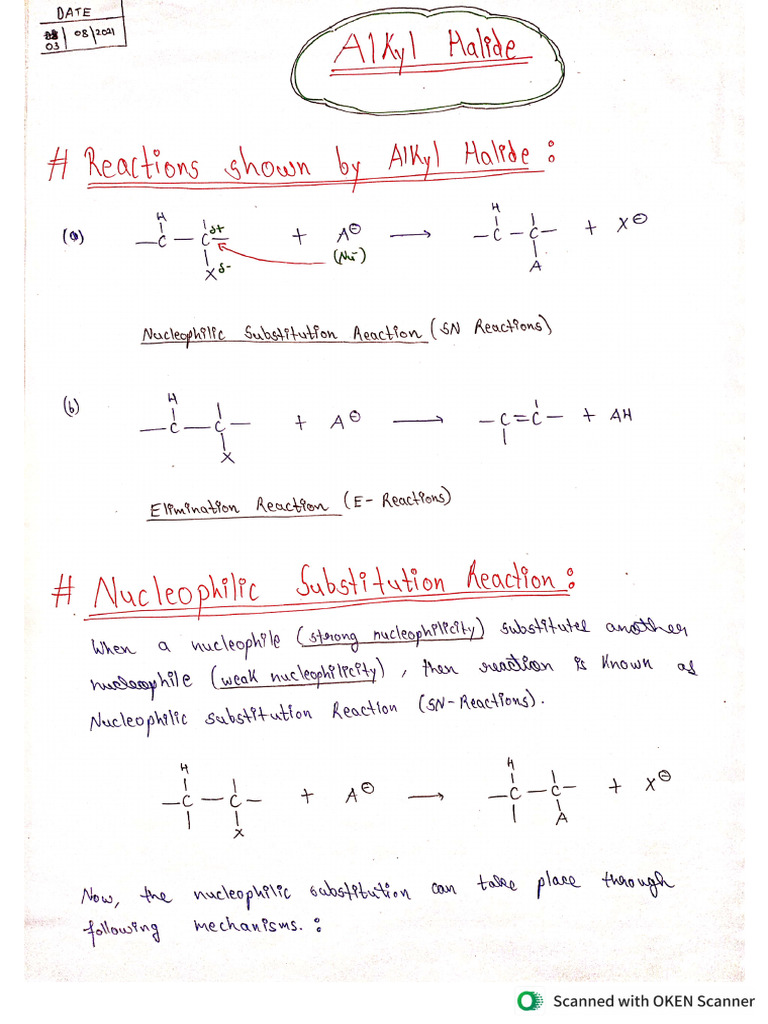 DATE
03/08/2021
Alkyl Halide
# Reactions shown by Alkyl Halide :
(a) —C—C— + A⊖ ⟶ —C—C— + X⊖
H δ+ X δ- (Nu-) H A
Nucleophilic Substitution Reaction (SN Reactions)
(b) —C—C— + A⊖ ⟶ —C=C— + AH
H X
Elimination Reaction (E- Reactions)
# Nucleophilic Substitution Reaction :
When a nucleophile (strong nucleophilicity) substitutes another
nucleophile (weak nucleophilicity), then reaction is known as
Nucleophilic substitution Reaction (SN-Reactions).
H H
—C—C— + A⊖ ⟶ —C—C— + X⊖
X A
Now, the nucleophilic substitution can take place through
following mechanisms. :
Scanned with OKEN Scanner